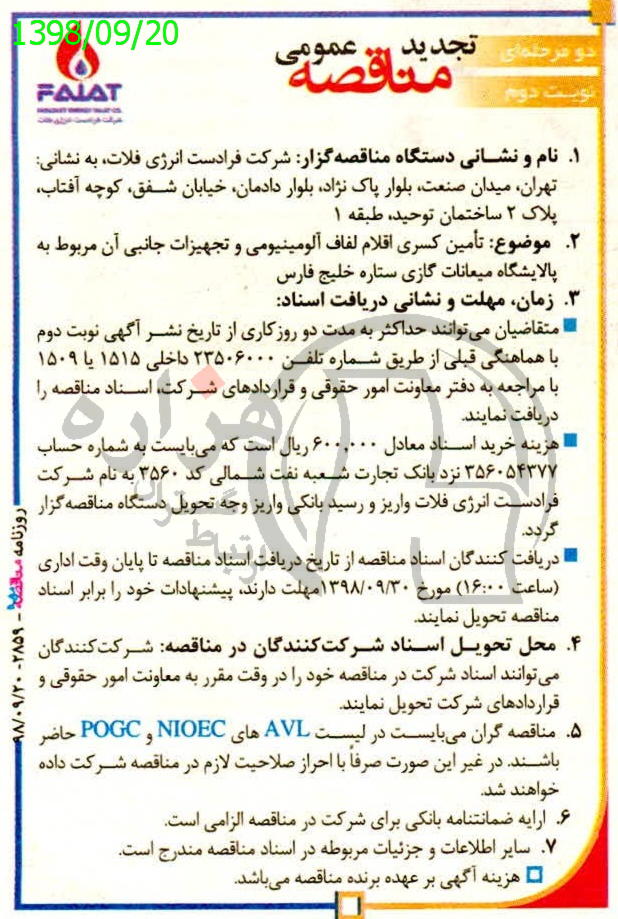 1398/09/20
دو مرحله‌ای
نوبت دوم
تجدید
عمومی
مناقصه
FALAT
FARADAST ENERGY FALAT CO.
شرکت فرادست انرژی فلات
۱. نام و نشانی دستگاه مناقصه‌گزار: شرکت فرادست انرژی فلات، به نشانی:
تهران، میدان صنعت، بلوار پاک نژاد، بلوار دادمان، خیابان شفق، کوچه آفتاب،
پلاک ۲ ساختمان توحید، طبقه ۱
۲. موضوع: تأمین کسری اقلام لفاف آلومینیومی و تجهیزات جانبی آن مربوط به
پالایشگاه میعانات گازی ستاره خلیج فارس
۳. زمان، مهلت و نشانی دریافت اسناد:
متقاضیان می‌توانند حداکثر به مدت دو روزکاری از تاریخ نشر آگهی نوبت دوم
با هماهنگی قبلی از طریق شماره تلفن ۲۳۵۰۶۰۰۰ داخلی ۱۵۱۵ یا ۱۵۰۹
با مراجعه به دفتر معاونت امور حقوقی و قراردادهای شرکت، اسناد مناقصه را
دریافت نمایند.
هزینه خرید اسناد معادل ۶۰۰,۰۰۰ ریال است که می‌بایست به شماره حساب
۳۵۶۰۵۴۳۷۷ نزد بانک تجارت شعبه نفت شمالی کد ۳۵۶۰ به نام شرکت
فرادست انرژی فلات واریز و رسید بانکی واریز وجه تحویل دستگاه مناقصه‌گزار
گردد.
دریافت کنندگان اسناد مناقصه از تاریخ دریافت اسناد مناقصه تا پایان وقت اداری
(ساعت ۱۶:۰۰) مورخ ۱۳۹۸/۰۹/۳۰مهلت دارند، پیشنهادات خود را برابر اسناد
مناقصه تحویل نمایند.
۴. محل تحویل اسناد شرکت‌کنندگان در مناقصه: شرکت‌کنندگان
می‌توانند اسناد شرکت در مناقصه خود را در وقت مقرر به معاونت امور حقوقی و
قراردادهای شرکت تحویل نمایند.
۵. مناقصه گران می‌بایست در لیست AVL های NIOEC و POGC حاضر
باشند. در غیر این صورت صرفاً با احراز صلاحیت لازم در مناقصه شرکت داده
خواهند شد.
۶. ارایه ضمانتنامه بانکی برای شرکت در مناقصه الزامی است.
۷. سایر اطلاعات و جزئیات مربوطه در اسناد مناقصه مندرج است.
هزینه آگهی بر عهده برنده مناقصه می‌باشد.
روزنامه مناقصه - ۲۸۵۹ - ۹۸/۰۹/۲۰
هزاره
ارتباط